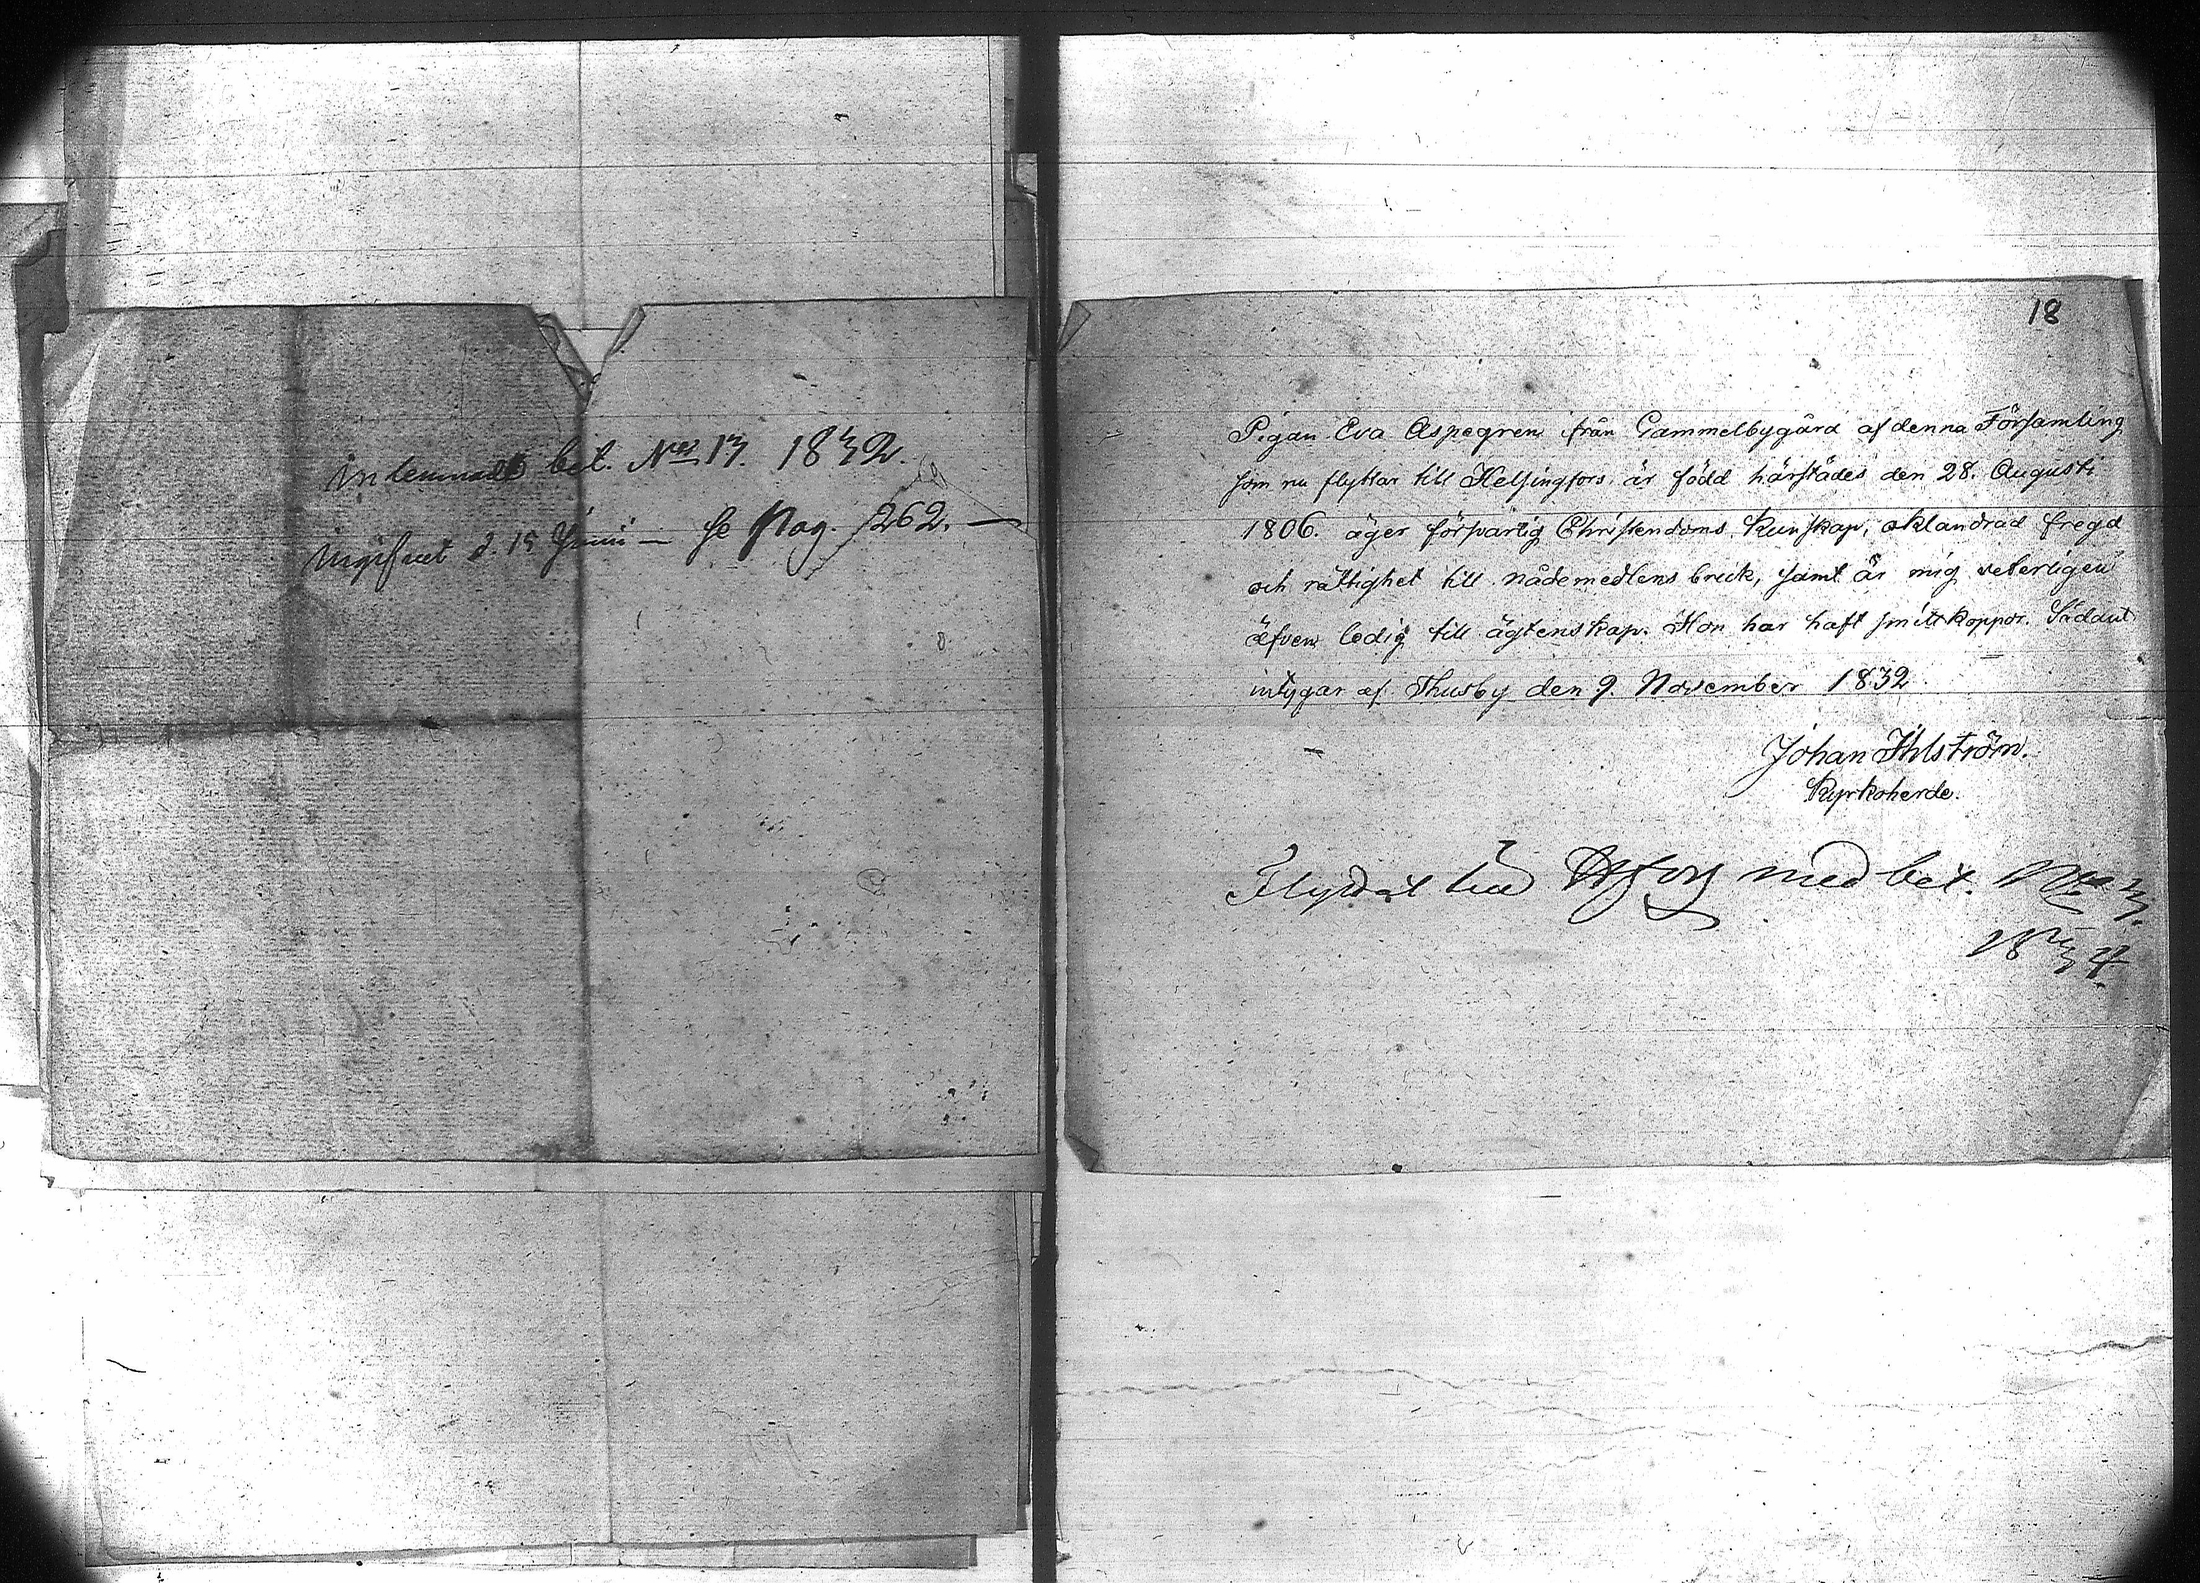 inlemnadt bet. No 13. 1832.
d. 15 Junii — se Pag. 262. —
18
Pigan Eva Aspegren ifrån Gammelbygård af denna Församling
som nu flyttar till Helsingfors, är född härstädes den 28. Augusti
1806. äger försvarlig Christendoms Kunskap, oklandrad fregd
och rättighet till nådemedlens bruk, samt är mig veterligen
äfven ledig till ägtenskap. Hon har haft smittkoppor. Sådant
intygar af Thusby den 9. November 1832
Johan Ihlström.
Kyrkoherde.
med bet. No 3.
1834.